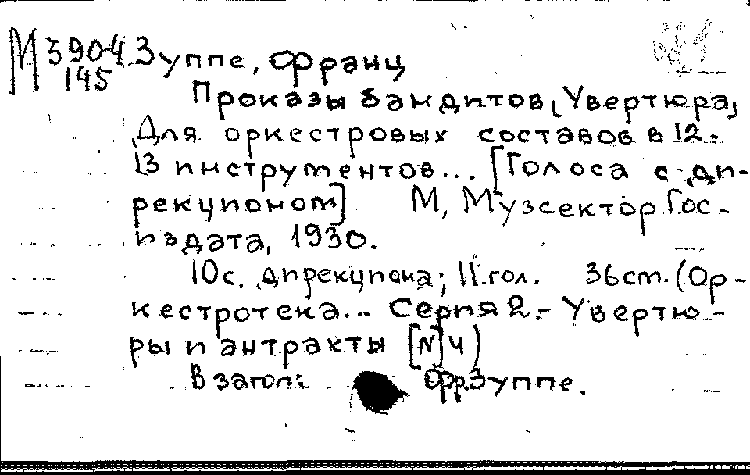 М 3904 Зуппе, Франц
145
Проказы бандитов, Увертюра,
Для оркестровых составов в 12-
13 инструментов... [Голоса с ди-
рекционом] М, Музсектор Гос-
издата, 1930.
10с. дирекциона; 11 гол. 36 ст. (Ор-
кестротека... Серия 2.- Увертю-
ры и антракты [N] 4)
В загол: Фр. Зуппе.